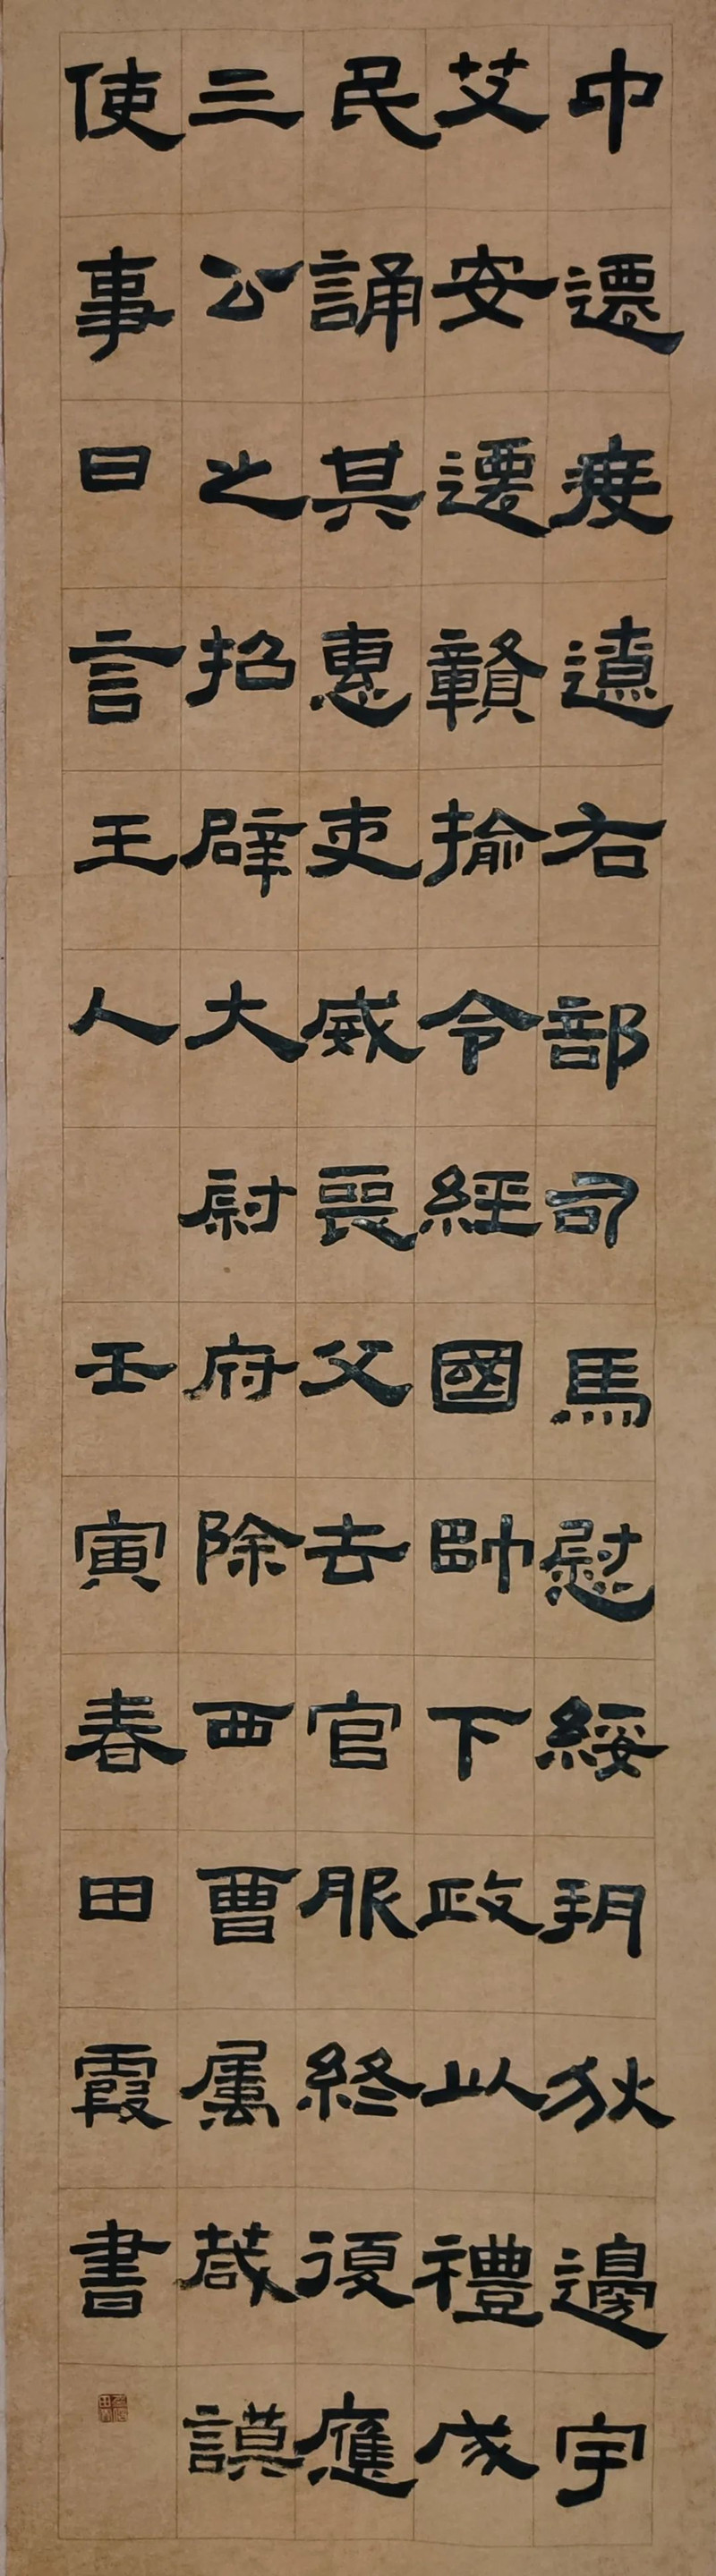 中遷度遼右部司馬慰綏朔狄邊宇
艾安遷贛揄令經國帥下政以禮成
民誦其惠吏威喪父去官服終復應
三公之招辟大尉府除西曹屬葴謨
使事曰言王人 壬寅春田霞書